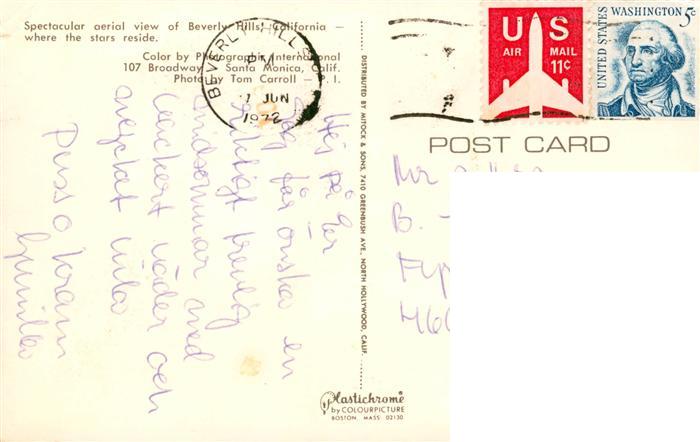 Spectacular aerial view of Beverly Hills, California —
where the stars reside.
Color by Photographic International
107 Broadway — Santa Monica, Calif.
Photo by Tom Carroll — P. I.
BEVERLY HILLS
PM
7 JUN
1972
US
AIR MAIL
11¢
UNITED STATES
WASHINGTON 5¢
POST CARD
DISTRIBUTED BY MITOCK & SONS, 7410 GREENBUSH AVE., NORTH HOLLYWOOD, CALIF.
Hej på Er
Jag får önska en
riktigt trevlig
midsommar med
vackert väder och
mycket
Puss o kram
Gunilla
Mr
B.
Plastichrome
by COLOURPICTURE
BOSTON, MASS 02130